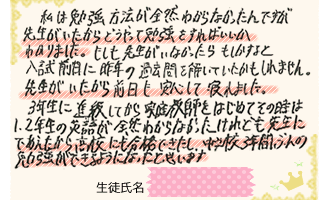 私は勉強方法が全然わからなかたんですが
先生がいたからどうやって勉強をすればいいか
わかりました。もしも先生がいなかたらもしかすると
入試前日に昨年の過去問を解いていたかもしれません。
先生がいたから前日も安心して寝れました。
3年生に進級してから家庭教師をはじめてその時は
1.2年生の英語が全然わからなかたけれども先生に
であえたから高校にも合格できたし、中学校3年間ぶんの
勉強ができるようになったと思います
生徒氏名